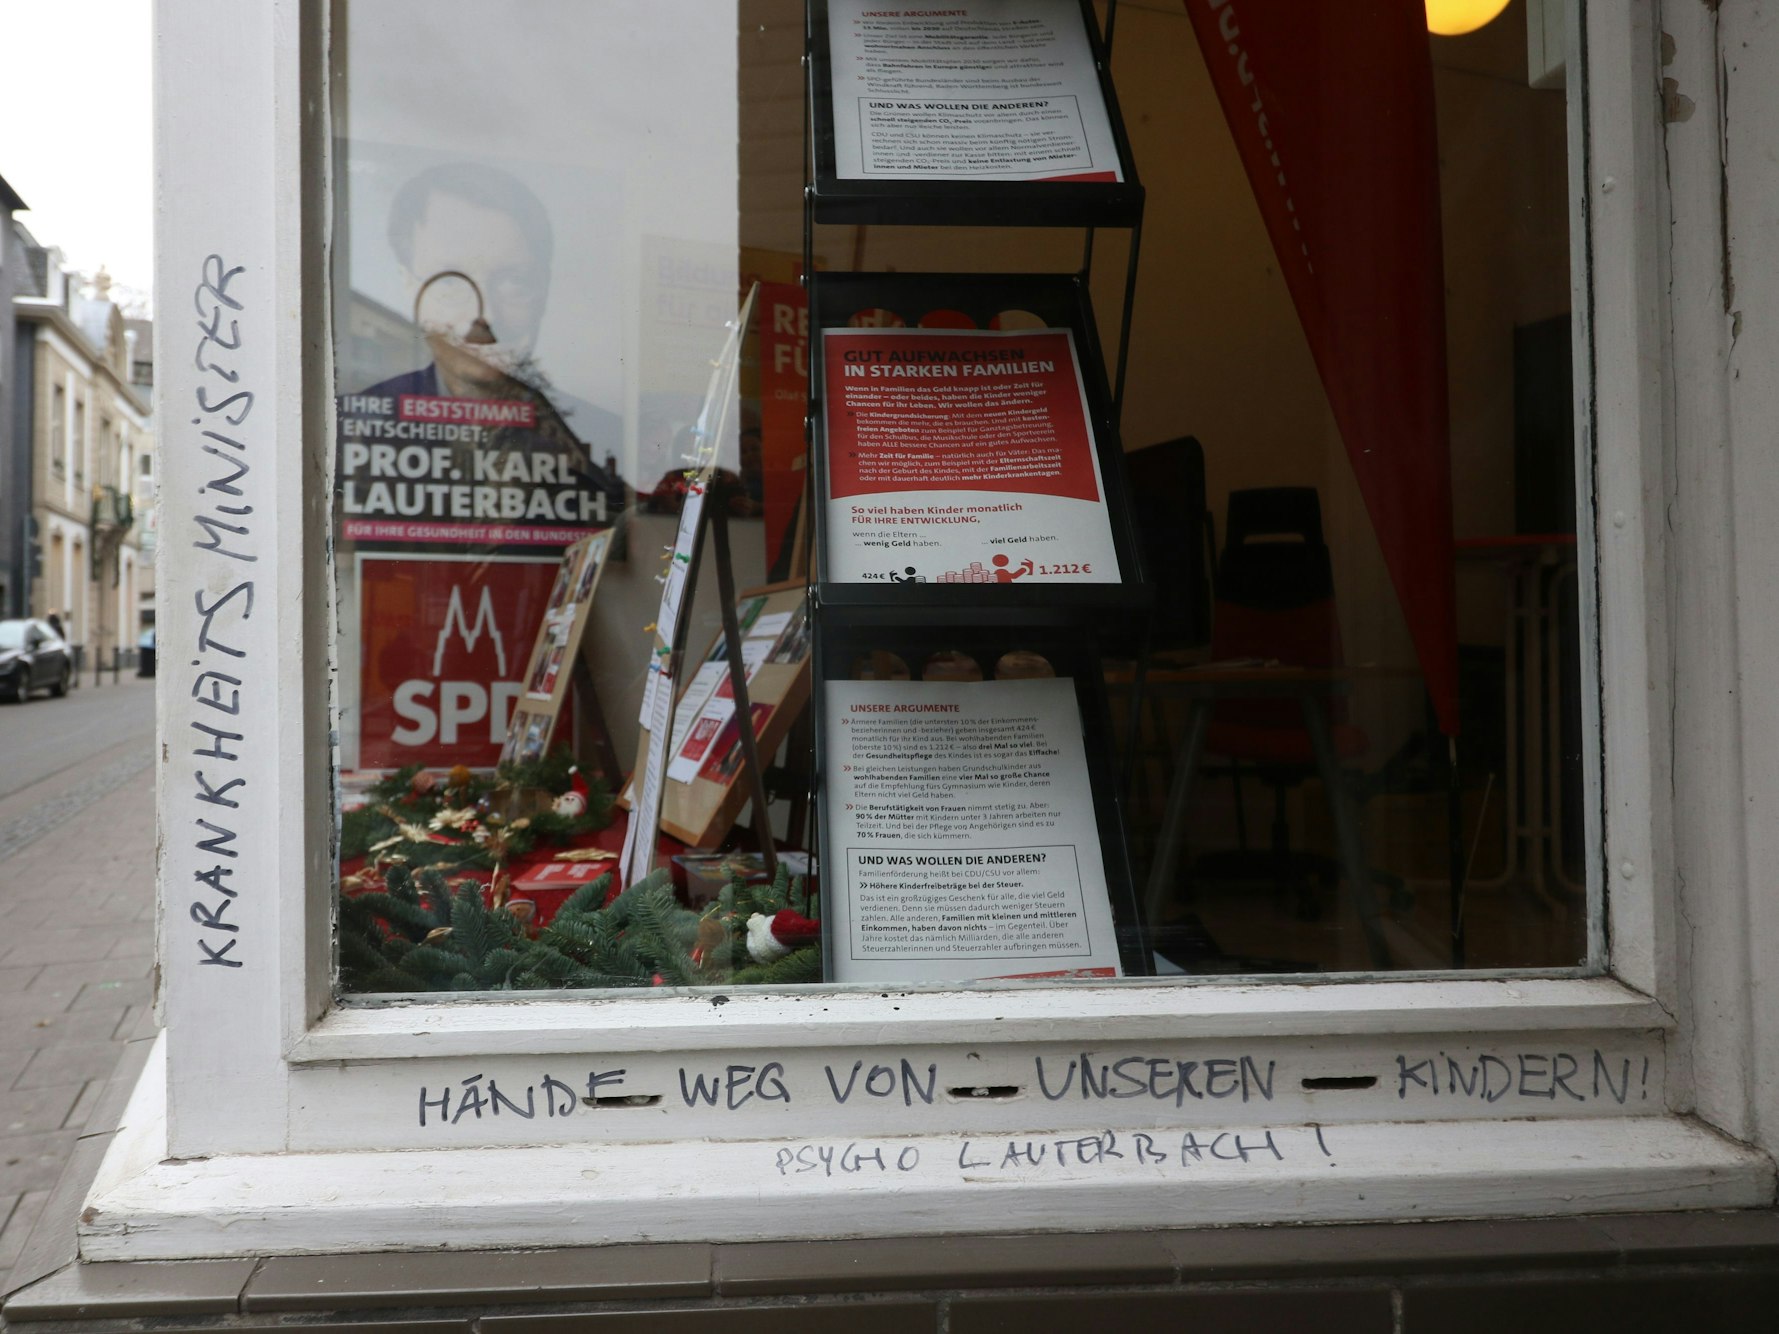 KRANKHEITSMINISTER
IHRE ERSTSTIMME
ENTSCHEIDET:
PROF. KARL
LAUTERBACH
FÜR IHRE GESUNDHEIT IN DEN
SPD
UNSERE ARGUMENTE
UND WAS WOLLEN DIE ANDEREN?
Die Grünen wollen Klimaschutz vor allem durch einen
schnell steigenden CO₂-Preis voranbringen. Das können
sich aber nur Reiche leisten.
CDU und CSU können keinen Klimaschutz – sie ver-
rechnen sich schon massiv beim künftig nötigen Strom-
bedarf. Und auch sie wollen vor allem Normalverdiener-
innen und -verdiener zur Kasse bitten: mit einem schnell
steigenden CO₂-Preis und keine Entlastung von Mieter-
innen und Mieter bei den Heizkosten.
GUT AUFWACHSEN
IN STARKEN FAMILIEN
Wenn in Familien das Geld knapp ist oder Zeit für
einander – oder beides, haben die Kinder weniger
Chancen für ihr Leben. Wir wollen das ändern.
» Die Kindergrundsicherung: Mit dem neuen Kindergeld
bekommen die mehr, die es brauchen. Und mit kosten-
freien Angeboten zum Beispiel für Ganztagsbetreuung,
für den Schulbus, die Musikschule oder den Sportverein
haben ALLE bessere Chancen auf ein gutes Aufwachsen.
» Mehr Zeit für Familie – natürlich auch für Väter: Das ma-
chen wir möglich, zum Beispiel mit der Elternschaftszeit
nach der Geburt des Kindes, mit der Familienarbeitszeit
oder mit dauerhaft deutlich mehr Kinderkrankentagen.
So viel haben Kinder monatlich
FÜR IHRE ENTWICKLUNG,
wenn die Eltern ...
... wenig Geld haben. ... viel Geld haben.
424 € 1.212 €
UNSERE ARGUMENTE
» Ärmere Familien (die untersten 10 % der Einkommens-
bezieherinnen und -bezieher) geben insgesamt 424 €
monatlich für ihr Kind aus. Bei wohlhabenden Familien
(oberste 10 %) sind es 1.212 € – also drei Mal so viel. Bei
der Gesundheitspflege des Kindes ist es sogar das Elffache!
» Bei gleichen Leistungen haben Grundschulkinder aus
wohlhabenden Familien eine vier Mal so große Chance
auf die Empfehlung fürs Gymnasium wie Kinder, deren
Eltern nicht viel Geld haben.
» Die Berufstätigkeit von Frauen nimmt stetig zu. Aber:
90 % der Mütter mit Kindern unter 3 Jahren arbeiten nur
Teilzeit. Und bei der Pflege von Angehörigen sind es zu
70 % Frauen, die sich kümmern.
UND WAS WOLLEN DIE ANDEREN?
Familienförderung heißt bei CDU/CSU vor allem:
» Höhere Kinderfreibeträge bei der Steuer.
Das ist ein großzügiges Geschenk für alle, die viel Geld
verdienen. Denn sie müssen dadurch weniger Steuern
zahlen. Alle anderen, Familien mit kleinen und mittleren
Einkommen, haben davon nichts – im Gegenteil. Über
Jahre kostet das nämlich Milliarden, die alle anderen
Steuerzahlerinnen und Steuerzahler aufbringen müssen.
HÄNDE WEG VON UNSEREN KINDERN!
PSYCHO LAUTERBACH!